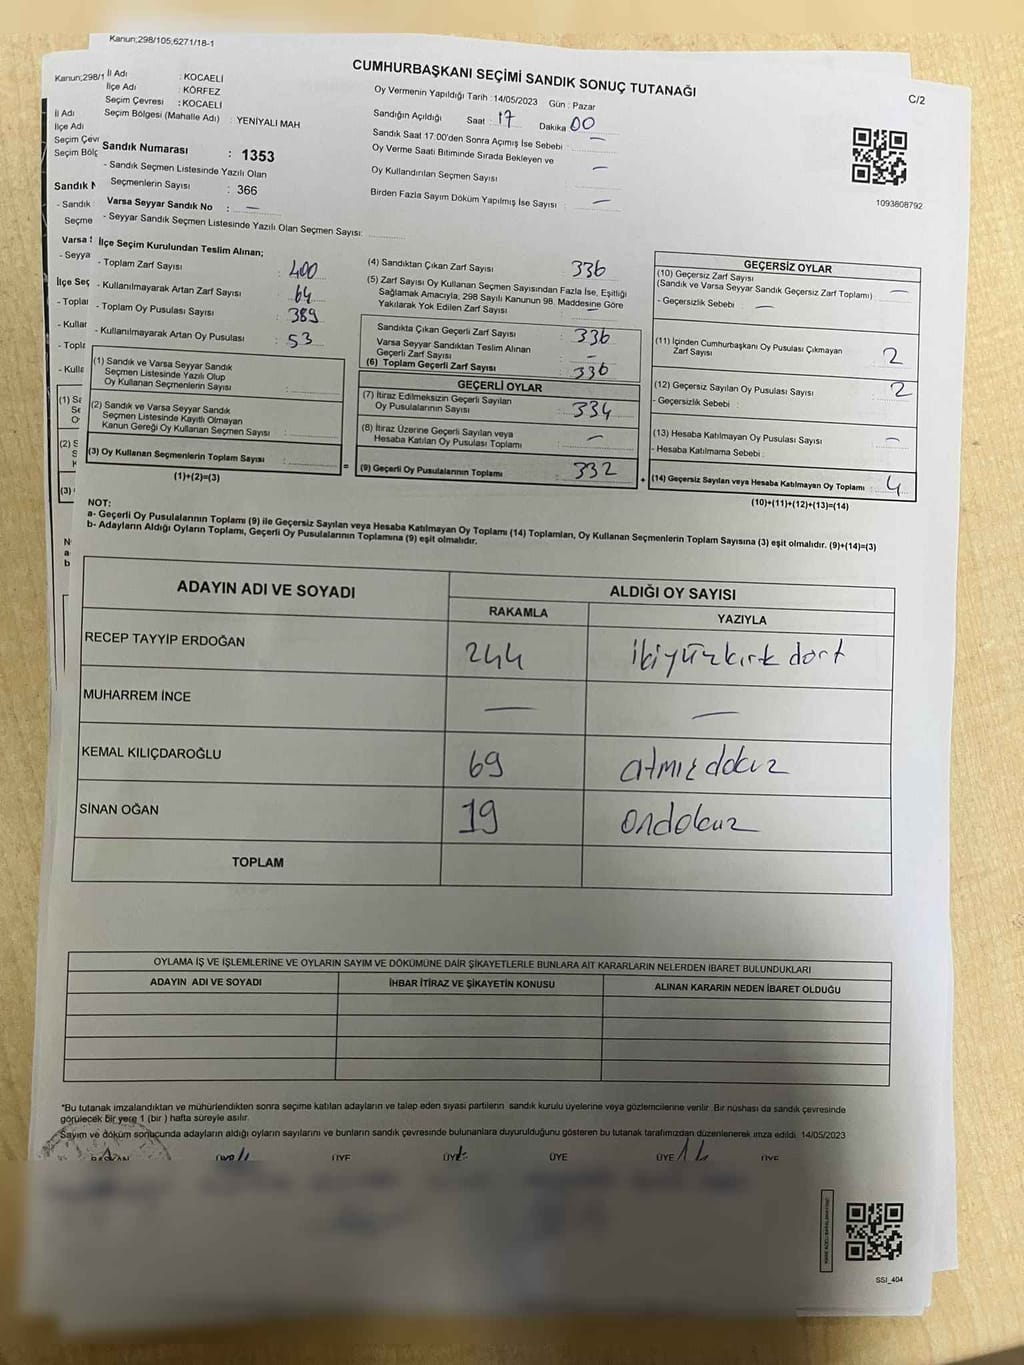 Kanun;298/105;6271/18-1
CUMHURBAŞKANI SEÇİMİ SANDIK SONUÇ TUTANAĞI
C/2
Kanun;298/1
İl Adı : KOCAELİ
İlçe Adı : KÖRFEZ
Seçim Çevresi : KOCAELİ
Seçim Bölgesi (Mahalle Adı) : YENİYALI MAH
Sandık Numarası : 1353
- Sandık Seçmen Listesinde Yazılı Olan
Seçmenlerin Sayısı : 366
Varsa Seyyar Sandık No : —
- Seyyar Sandık Seçmen Listesinde Yazılı Olan Seçmen Sayısı:
Oy Vermenin Yapıldığı Tarih : 14/05/2023 Gün : Pazar
Sandığın Açıldığı Saat : 17 Dakika 00
Sandık Saat 17:00'den Sonra Açımış İse Sebebi : —
Oy Verme Saati Bitiminde Sırada Bekleyen ve
Oy Kullandırılan Seçmen Sayısı : —
Birden Fazla Sayım Döküm Yapılmış İse Sayısı : —
1093808792
İl Adı
İlçe Adı
Seçim Çev
Seçim Bölg
Sandık N
- Sandık
Seçme
Varsa S
- Seyya
İlçe Seç
- Toplar
- Kullar
- Topla
- Kulla
İlçe Seçim Kurulundan Teslim Alınan;
- Toplam Zarf Sayısı : 400
- Kullanılmayarak Artan Zarf Sayısı : 64
- Toplam Oy Pusulası Sayısı : 389
- Kullanılmayarak Artan Oy Pusulası : 53
(1) Sandık ve Varsa Seyyar Sandık
Seçmen Listesinde Yazılı Olup
Oy Kullanan Seçmenlerin Sayısı :
(2) Sandık ve Varsa Seyyar Sandık
Seçmen Listesinde Kayıtlı Olmayan
Kanun Gereği Oy Kullanan Seçmen Sayısı :
(3) Oy Kullanan Seçmenlerin Toplam Sayısı :
(1)+(2)=(3)
(4) Sandıktan Çıkan Zarf Sayısı : 336
(5) Zarf Sayısı Oy Kullanan Seçmen Sayısından Fazla İse, Eşitliği
Sağlamak Amacıyla, 298 Sayılı Kanunun 98. Maddesine Göre
Yakılarak Yok Edilen Zarf Sayısı : —
Sandıkta Çıkan Geçerli Zarf Sayısı : 336
Varsa Seyyar Sandıktan Teslim Alınan
Geçerli Zarf Sayısı : —
(6) Toplam Geçerli Zarf Sayısı : 336
GEÇERLİ OYLAR
(7) İtiraz Edilmeksizin Geçerli Sayılan
Oy Pusulalarının Sayısı : 334
(8) İtiraz Üzerine Geçerli Sayılan veya
Hesaba Katılan Oy Pusulası Toplamı : —
(9) Geçerli Oy Pusulalarının Toplamı : 332
GEÇERSİZ OYLAR
(10) Geçersiz Zarf Sayısı
(Sandık ve Varsa Seyyar Sandık Geçersiz Zarf Toplamı) : —
- Geçersizlik Sebebi : —
(11) İçinden Cumhurbaşkanı Oy Pusulası Çıkmayan
Zarf Sayısı : 2
(12) Geçersiz Sayılan Oy Pusulası Sayısı : 2
- Geçersizlik Sebebi :
(13) Hesaba Katılmayan Oy Pusulası Sayısı : —
- Hesaba Katılmama Sebebi :
(14) Geçersiz Sayılan veya Hesaba Katılmayan Oy Toplamı : 4
(10)+(11)+(12)+(13)=(14)
NOT:
a- Geçerli Oy Pusulalarının Toplamı (9) ile Geçersiz Sayılan veya Hesaba Katılmayan Oy Toplamı (14) Toplamları, Oy Kullanan Seçmenlerin Toplam Sayısına (3) eşit olmalıdır. (9)+(14)=(3)
b- Adayların Aldığı Oyların Toplamı, Geçerli Oy Pusulalarının Toplamına (9) eşit olmalıdır.
ADAYIN ADI VE SOYADI ALDIĞI OY SAYISI
RAKAMLA YAZIYLA
RECEP TAYYİP ERDOĞAN 244 ikiyüzkırk dört
MUHARREM İNCE — —
KEMAL KILIÇDAROĞLU 69 atmış dokuz
SİNAN OĞAN 19 ondokuz
TOPLAM
OYLAMA İŞ VE İŞLEMLERİNE VE OYLARIN SAYIM VE DÖKÜMÜNE DAİR ŞİKAYETLERLE BUNLARA AİT KARARLARIN NELERDEN İBARET BULUNDUKLARI
ADAYIN ADI VE SOYADI İHBAR İTİRAZ VE ŞİKAYETİN KONUSU ALINAN KARARIN NEDEN İBARET OLDUĞU
*Bu tutanak imzalandıktan ve mühürlendikten sonra seçime katılan adayların ve talep eden siyasi partilerin sandık kurulu üyelerine veya gözlemcilerine verilir. Bir nüshası da sandık çevresinde
görülecek bir yere 1 (bir ) hafta süreyle asılır.
Sayım ve döküm sonucunda adayların aldığı oyların sayılarını ve bunların sandık çevresinde bulunanlara duyurulduğunu gösteren bu tutanak tarafımızdan düzenlenerek imza edildi. 14/05/2023
BAŞKAN ÜYE ÜYE ÜYE ÜYE ÜYE ÜYE
SSI_404